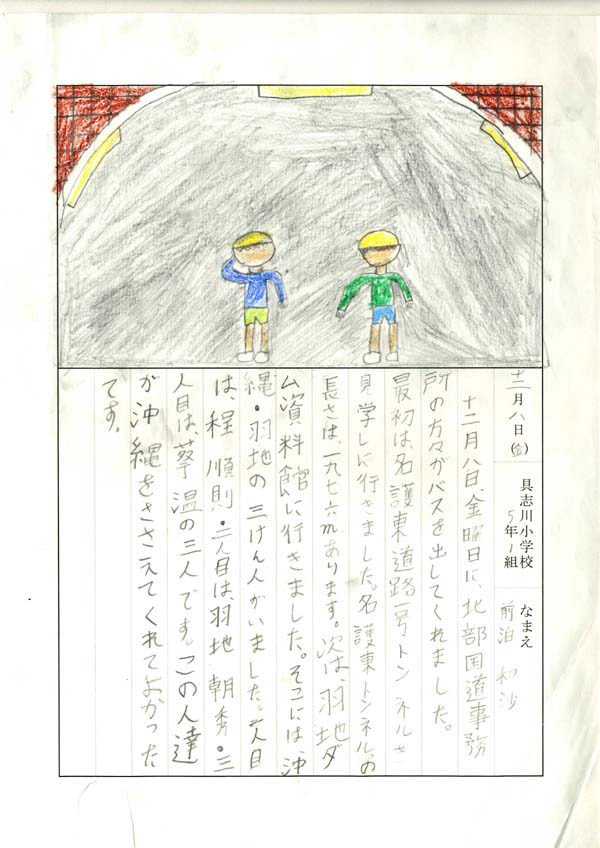 十二月八日(金)
具志川小学校
5年1組
なまえ
前泊 和沙
十二月八日、金曜日に、北部国道事務
所の方々がバスを出してくれました。
最初は、名護東道路一号トンネルを
見学しに行きました。名護東トンネルの
長さは、一九七六mあります。次は、羽地ダ
ム資料館に行きました。そこには、沖
縄・羽地の三けん人がいました。一人目
は、程順則・二人目は羽地朝秀・三
人目は、蔡温の三人です。この人達
が沖縄をささえてくれてよかった
です。